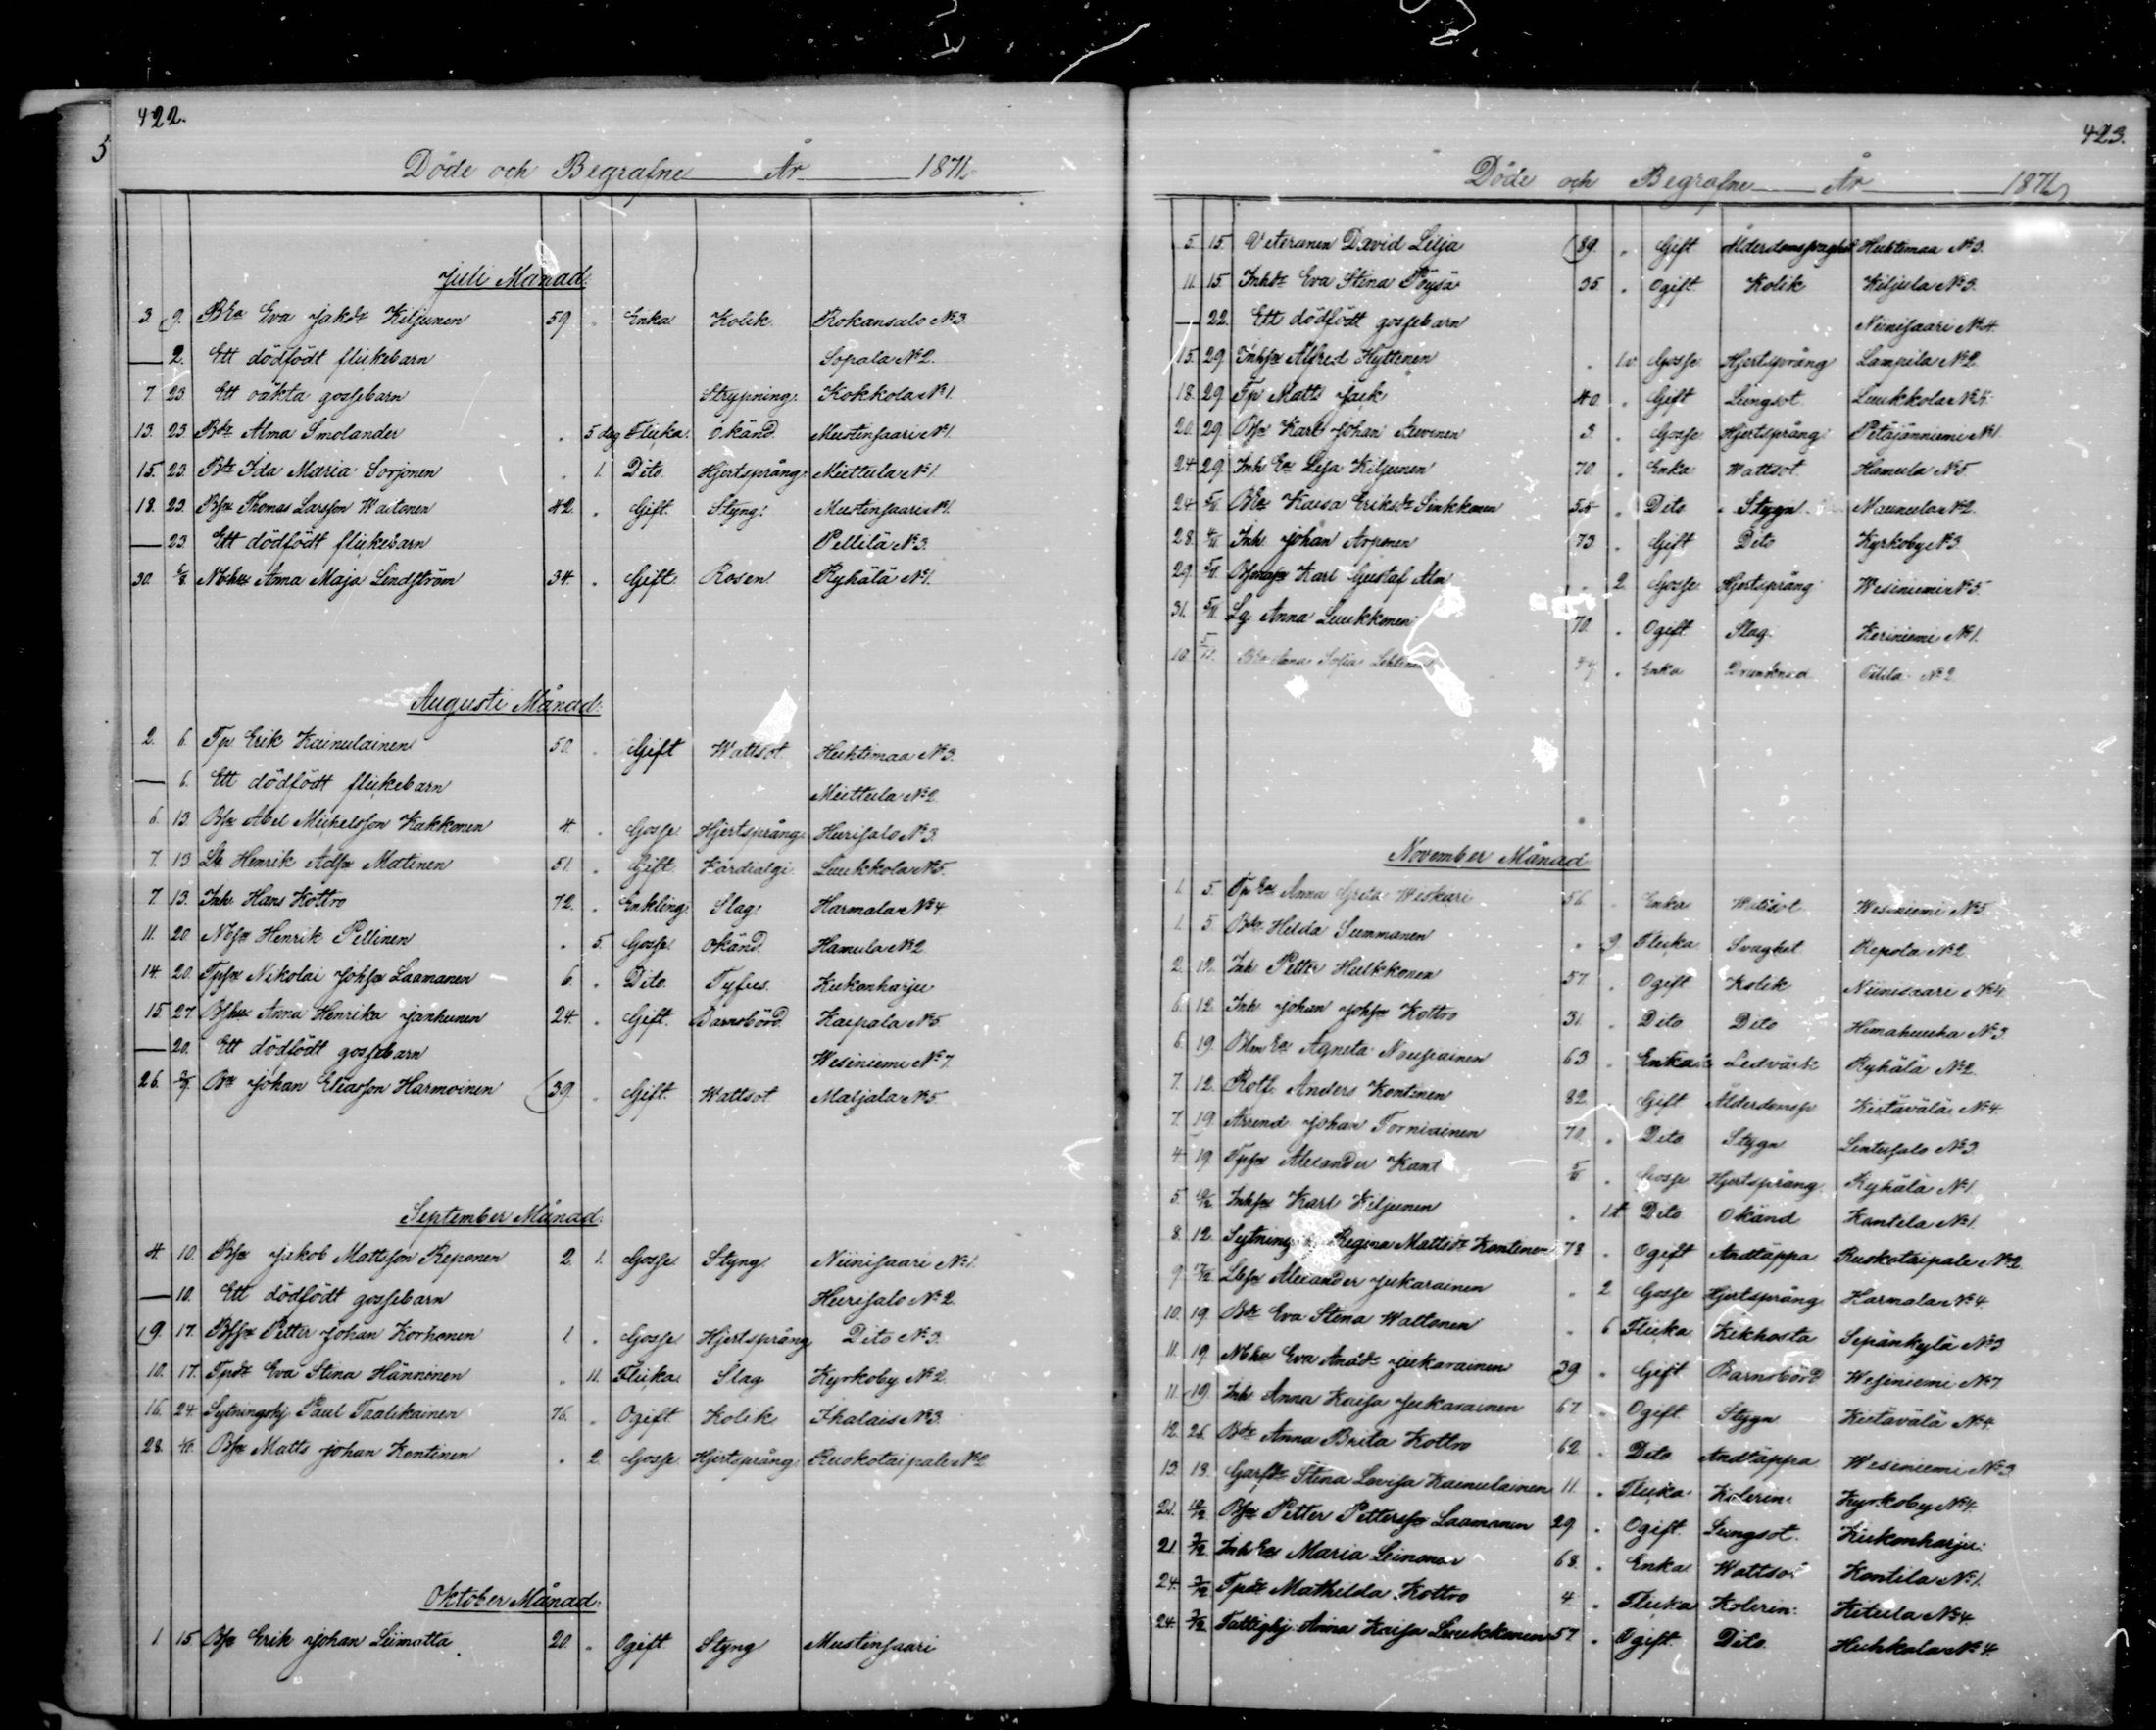 422.
5
Döde och Begrafne År 1871.
Juli Månad:
3. 9. Bea Eva Jakdr Kiljunen 59. Enka Kolik. Rokansalo No 3.
— 2. Ett dödfödt flickebarn Sopala No 2.
7 23. Ett oäkta gossebarn Strypning. Kokkola No 1.
13. 23. Bdr Alma Smolander 5 dag Flicka. Okänd. Mustinsaari No 1.
15. 23 Bdr Ida Maria Sorjonen 1. Dito. Hjertsprång. Miettula No 1.
18. 23. Bsn Thomas Larsson Waitonen 42. Gift. Styng. Mustinsaari No 1.
— 23 Ett dödfödt flickebarn Pellilä No 3.
30. 6/8. Nbhu Anna Maja Lindström 34. Gift. Rosen Ryhälä No 1.
Augusti Månad:
2. 6. Tp Erik Kainulainen 50. Gift Wattsot Huhtimaa No 3.
— 6. Ett dödfödt flickebarn Miettula No 2.
6. 13. Bsn Abel Michelsson Kakkonen 4. Gosse. Hjertsprång. Hurisalo No 3.
7. 13 Lb Henrik Adsn Matinen 51. Gift. Kardialgi. Luukkola No 5.
7 13. Inh. Hans Kottro 72. Enkling. Slag. Harmala No 4.
11. 20 Nbsn Henrik Pellinen 5. Gosse. Okänd. Hamula No 2.
14. 20. Tpsn Nikolai Johsn Laamanen 6. Dito. Tyfus. Kukonharju
15 27. Bhu Anna Henrika Janhunen 24. Gift. Barnsbörd. Kaipala No 5.
— 20. Ett dödfödt gossebarn Wesiniemi No 7.
26. 3/9. Bn Johan Eliasson Harmoinen 39. Gift. Wattsot. Maljala No 5.
September Månad:
4 10. Bsn Jakob Mattsson Reponen 2. 1. Gosse. Styng. Niinisaari No 1.
— 10. Ett dödfödt gossebarn Hurisalo No 2.
9. 17. Bsn Petter Johan Korhonen 1. Gosse. Hjertsprång Dito No 3.
10. 17. Tpdr Eva Stina Hänninen 11. Flicka. Slag Kyrkoby No 2.
16. 24. Sytningshj Paul Taalikainen 76. Ogift Kolik Ihalais No 3.
28. 1/10. Bsn Matts Johan Kontinen 2. Gosse. Hjertsprång. Ruokotaipale No 2
Oktober Månad:
1 15 Bsn Erik Johan Liimatta. 20. Ogift. Styng Mustinsaari
423.
Döde och Begrafne År 1871
5. 15. Veteranen David Lilja 89. Gift Ålderdomssvaghet Huhtimaa No 3.
11. 15. Inhdr Eva Stina Pöysä 35. Ogift Kolik Kiljula No 3.
— 22. Ett dödfödt gossebarn Niinisaari No 4.
15. 29 Inhsn Alfred Hyttinen 1.v Gosse. Hjertsprång Lampila No 2.
18. 29 Tp Matts Jack 40. Gift Lungsot. Luukkola No 5.
20. 29 Bsn Karl Johan Auvinen 3. Gosse. Hjertsprång. Petäjäniemi No 1.
24. 29. Inh Ea Lisa Kiljunen 70 Enka Wattsot. Hamula No 5
24 5/11. Bea Kaisa Eriksdr Sinkkonen 55 Dito Stygn. Maunula No 2.
28. Inh Johan Arponen 73. Gift Dito Kyrkoby No 3.
29 5/11. Karl Gustaf 2. Gosse. Hjertsprång Wesiniemi No 5.
31. 5/11. Lg. Anna Luukkonen 70. Ogift Slag. Keriniemi No 1.
10 5/11. Bea Anna Sofia Lehtinen 44. Enka No 2.
November Månad:
1. 5. Tp Ea Anna Greta Weskari 56. Enka Wattsot. Wesiniemi No 5
1. 5. Bdr Hilda Summanen 9. Flicka. Svaghet. Repola No 2.
2. 12. Inh Petter Hulkkonen 57. Ogift Kolik Niinisaari No 4.
6. 12. Inh Johan Johsn Kottro 31. Dito Dito Himahuuha No 3.
6. 19. Ea Agneta Nousiainen 63 Enka Ledvärk Ryhälä No 2.
7. 12. Rotf. Anders Kontinen 82. Gift Ålderdomssv Kietävälä No 4.
7. 19. Arrend Johan Torniainen 70. Dito Stygn Lintusalo No 3.
4. 19. Tpsn Alexander Kant Gosse Hjertsprång. Ryhälä No 1.
5. Inhsn Karl Kiljunen 1.t Dito Okänd Kantila No 1.
8. 12. Sytning Regina Mattsdr Kontinen 78 Ogift Andtäppa Ruokotaipale No 2.
9 Lbsn Alexander Jukarainen 2 Gosse Hjertsprång Harmala No 4.
10. 19. Bdr Eva Stina Wattonen 6 Flicka Kikhosta Sepänkylä No 3
11. 19. Nbhu Eva Andr Jukarainen 39 Gift Barnsbörd Wesiniemi No 7
11. 19. Inh Anna Kaisa Jukarainen 67. Ogift. Stygn Kietävälä No 4.
12. 26. Bdr Anna Brita Kottro 62. Dito Andtäppa Wesiniemi No 3.
13. 13. Garfdr Stina Lovisa Kainulainen 11. Flicka Kolerin. Kyrkoby No 4.
21. Bsn Petter Pettersn Laamanen 29. Ogift. Lungsot. Kukonharju.
21. 3/12. Inh Ea Maria Leinonen 68. Enka Wattsot Kontila No 1.
24. 3/12. Tpdr Mathilda Kottro 4. Flicka Kolerin. Kitula No 4.
24. 3/12. Fattighj. Anna Kaisa Luukkonen 57. Ogift. Dito. Huhkala No 4.